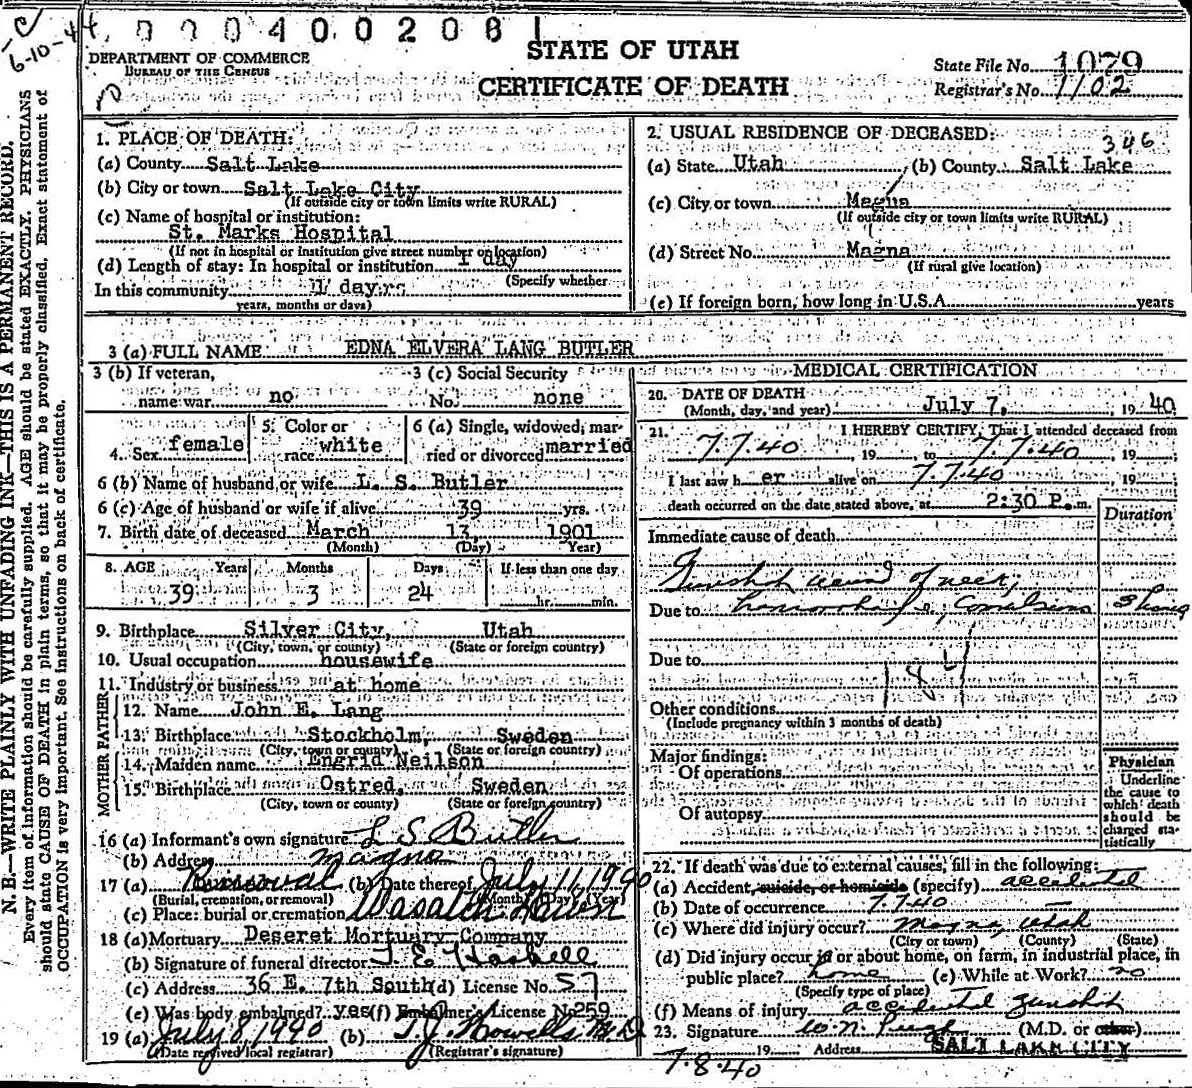 6-10-44
0 0 0 4 0 0 2 0 8 1
STATE OF UTAH
CERTIFICATE OF DEATH
DEPARTMENT OF COMMERCE
BUREAU OF THE CENSUS
State File No. 1079
Registrar's No. 1102
N. B.—WRITE PLAINLY WITH UNFADING INK—THIS IS A PERMANENT RECORD.
Every item of information should be carefully supplied. AGE should be stated EXACTLY. PHYSICIANS
should state CAUSE OF DEATH in plain terms, so that it may be properly classified. Exact statement of
OCCUPATION is very important. See instructions on back of certificate.
1. PLACE OF DEATH:
(a) County Salt Lake
(b) City or town Salt Lake City
(If outside city or town limits write RURAL)
(c) Name of hospital or institution:
St. Marks Hospital
(If not in hospital or institution give street number or location)
(d) Length of stay: In hospital or institution 1 day
(Specify whether
In this community 1 day
years, months or days)
2. USUAL RESIDENCE OF DECEASED:
346
(a) State Utah (b) County Salt Lake
(c) City or town Magna
(If outside city or town limits write RURAL)
(d) Street No. Magna
(If rural give location)
(e) If foreign born, how long in U.S.A. years
3 (a) FULL NAME EDNA ELVERA LANG BUTLER
3 (b) If veteran, name war no
3 (c) Social Security No. none
4. Sex female
5. Color or race white
6 (a) Single, widowed, married or divorced married
6 (b) Name of husband or wife L. S. Butler
6 (c) Age of husband or wife if alive 39 yrs.
7. Birth date of deceased March 13, 1901
(Month) (Day) (Year)
8. AGE Years Months Days If less than one day
39 3 24 hr. min.
9. Birthplace Silver City, Utah
(City, town, or county) (State or foreign country)
10. Usual occupation housewife
11. Industry or business at home
FATHER
12. Name John E. Lang
13. Birthplace Stockholm, Sweden
(City, town or county) (State or foreign country)
MOTHER
14. Maiden name Engrid Neilson
15. Birthplace Ostred, Sweden
(City, town or county) (State or foreign country)
16 (a) Informant's own signature L S Butler
(b) Address Magna
17 (a) Removal (b) Date thereof July 11, 1940
(Burial, cremation, or removal) (Month) (Day) (Year)
(c) Place: burial or cremation Wasatch Lawn
18 (a) Mortuary Deseret Mortuary Company
(b) Signature of funeral director
(c) Address 36 E. 7th South (d) License No. 57
(e) Was body embalmed? yes (f) Embalmer's License No. 259
19 (a) July 8, 1940 (b) T. J. Howells M.D.
(Date received local registrar) (Registrar's signature)
MEDICAL CERTIFICATION
20. DATE OF DEATH
(Month, day, and year) July 7, 1940
21. I HEREBY CERTIFY, That I attended deceased from
7.7.40, 19 , to 7.7.40, 19 ;
I last saw her alive on 7.7.40, 19 ;
death occurred on the date stated above, at 2:30 P. m.
Duration
Immediate cause of death
Gunshot wound of neck,
Due to
Due to
184
Other conditions
(Include pregnancy within 3 months of death)
Major findings:
Of operations
Of autopsy
Physician
Underline the cause to which death should be charged statistically
22. If death was due to external causes, fill in the following:
(a) Accident, suicide, or homicide (specify) accidental
(b) Date of occurrence 7.7.40
(c) Where did injury occur? Magna, Utah
(City or town) (County) (State)
(d) Did injury occur in or about home, on farm, in industrial place, in
public place? home (e) While at Work? no
(Specify type of place)
(f) Means of injury accidental gunshot
23. Signature W. N. Pugh (M.D. or other)
19 Address SALT LAKE CITY
7.8.40